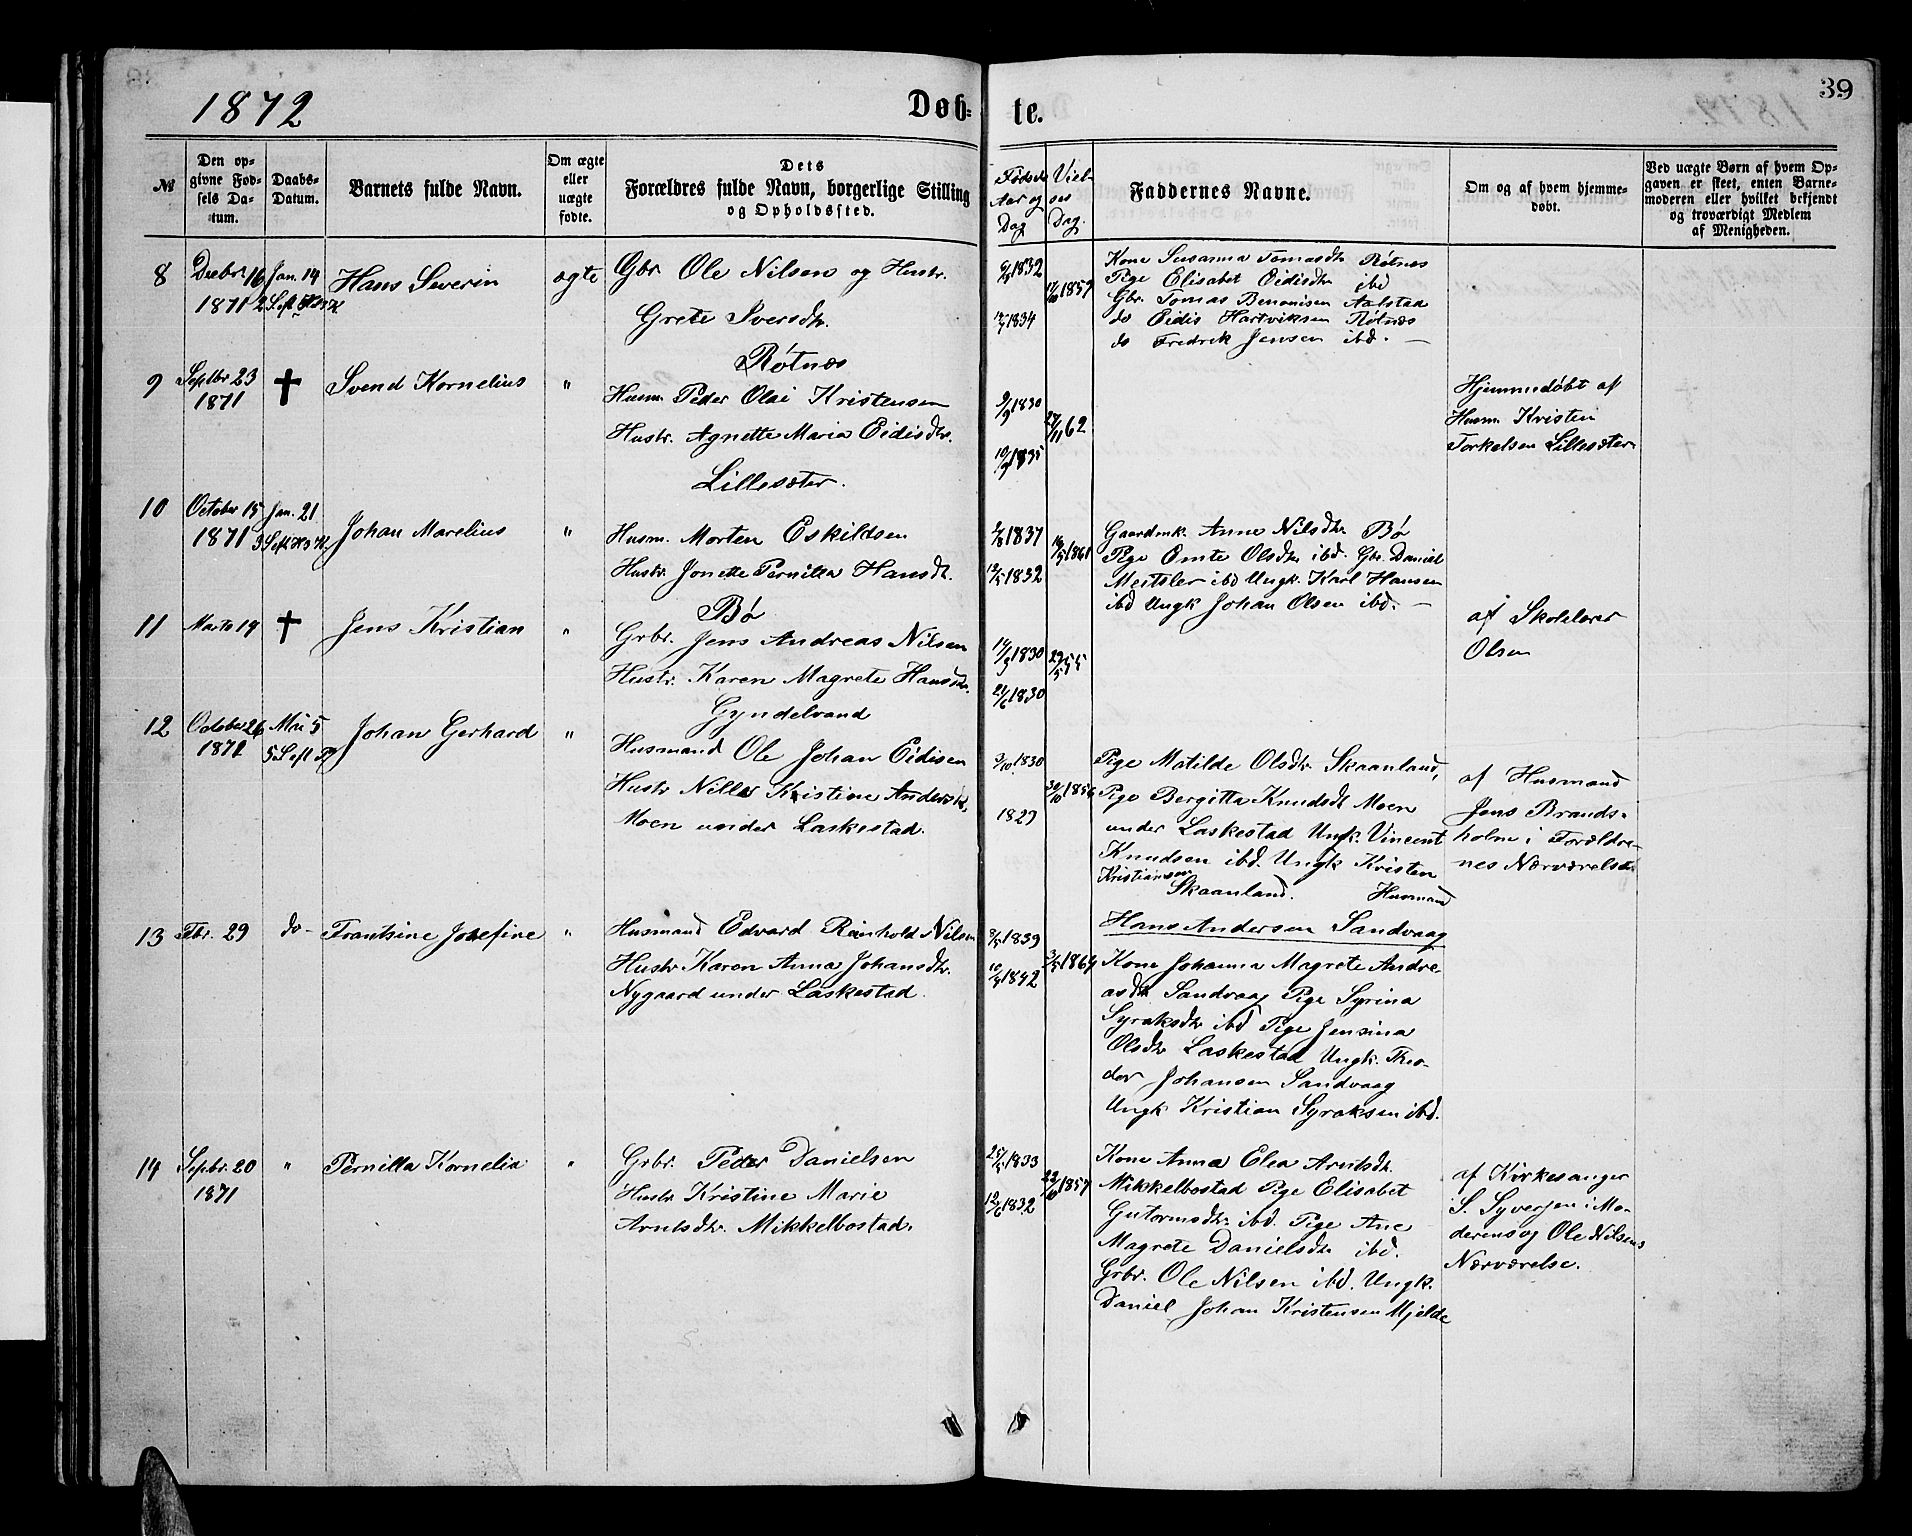 1872
Døb-
te.
39
№
Den op-
givne Fød-
sels Da-
tum.
Daabs-
Datum.
Barnets fulde Navn.
Om ægte
eller
uægte
fødte.
Dets
Forældres fulde Navn, borgerlige Stilling
og Opholdssted.
Føds.
Aar og
Dag
Viel-
ses
Dag.
Faddernes Navne.
Om og af hvem hjemme-
døbt.
Ved uægte Børn af hvem Op-
gaven er skeet, enten Barne-
moderen eller hvilket bekjendt
og troværdigt Medlem
af Menigheden.
8
Decbr. 16
1871
Jan. 14
Hans Severin
ægte
Gbr Ole Nilsen og Hustr.
Grete Iversdtr.
Røtnæs
1832
1834
1859
Kone Susanna Tomasdtr Røtnæs
Pige Elisabet Eidisdtr ibd
Gbr. Tomas Benonisen Aalstad
do Eidis Hartviksen Røtnæs
do Fredrik Jensen ibd. —
9
Septbr 23
1871
†
Svend Kornelius
"
Husm. Peder Olai Kristensen
Hustr. Agnette Maria Eidisdtr.
Lillesæter.
9/9 1830
1835
27/11 62
Hjemmedøbt af
Husm. Kristen
Torkelsen Lillesæter
10
October 15
1871
Jan. 21
Johan Marelius
"
Husm. Morten Eskildsen
Hustr. Jonette Pernilla Hansdtr.
Bø
1837
1832
1861
Gaardmk. Anne Nilsdtr Bø
Pige Emte Olsdtr ibd. Gbr. Daniel
ibd Ungk. Karl Hansen
ibd Ungk Johan Olsen ibd. —
11
Marts 19
†
Jens Kristian
"
Grbr. Jens Andreas Nilsen
Hustr. Karen Magrete Hansdtr.
Gyndelvand
1830
1830
55
af Skolelærer
Olsen
12
October 26
1872
Mai 5
Johan Gerhard
"
Husmand Ole Johan Eidisen
Hustr Nilla Kristine Andersdtr.
Moen under Laskestad.
1830
1829
Pige Matilde Olsdtr. Skaanland,
Pige Bergitta Knudsdt Moen
under Laskestad Ungk. Vincent
Knudsen ibd. Ungk Kristen
Kristiansen
Skaanland. Husmand
Hans Andersen Sandvaag
af Husmand
Jens Brands-
holm i Forældre-
nes Nærværelse
13
Fbr. 29
do -
Frantsine Josefine
"
Husmand Edvard Reinhold Nilsen
Hustr Karen Anna Johansdtr.
Nygaard under Laskestad.
1839
1842
Kone Johanna Magrete Andre-
asdtr Sandvaag Pige Syrina
Syraksdtr ibd Pige Jensina
Olsdtr Laskestad Ungk. Theo-
dor Johansen Sandvaag
Ungk Kristian Syraksen ibd.
14
Sepbr. 20
1871
"
Pernilla Kornelia
"
Grbr. Peder Danielsen
Hustr Kristine Marie
Arntsdtr. Mikkelbostad.
1833
1832
1857
Kone Anna Elea Arntsdtr.
Mikkelbostad Pige Elisabet
Gutormsdtr. ibd. Pige Ane
Magrete Danielsdtr ibd.
Grbr. Ole Nilsen ibd. Ungk.
Daniel Johan Kristensen Mjelde
af Kirkesanger
S. Syversen i Mo-
derens og Ole Nilsens
Nærværelse.